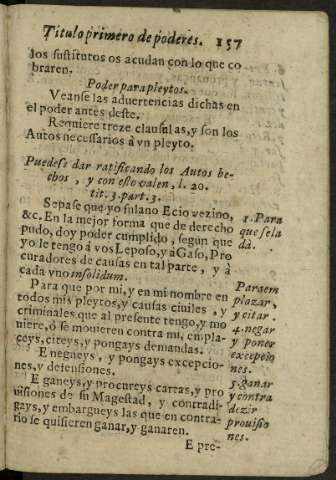 Titulo primero de poderes. 157
los sustitutos os acudan con lo que co
braren.
Poder para pleytos.
Veanse las aduertencias dichas en
el poder antes deste.
Requiere treze clausulas, y son los
Autos necessarios à vn pleyto.
Puedese dar ratificando los Autos he-
chos, y con esto valen, l. 20.
tit. 3. part. 3.
Sepase que yo fulano Ecio vezino,
&c. En la mejor forma que de derecho
pudo, doy poder cumplido, según que
yo le tengo à vos Leposo, y à Gaso, Pro
curadores de causas en tal parte, y à
cada vno insolidum.
Para que por mi, y en mi nombre en
todos mis pleytos, y causas ciuiles, y
criminales que al presente tengo, y mo
uiere, ò se mouieren contra mi, empla-
ceys, citeys, y pongays demandas.
E negueys, y pongays excepcio-
nes, y defensiones.
E ganeys, y procureys cartas, y pro
uisiones de su Magestad, y contradi-
gays, y embargueys las que en contra-
rio se quisieren ganar, y ganaren.
E pre-
1. Para
que se la
dà.
Para em
plazar,
y citar.
4. negar
y poner
excepcio
nes.
5. ganar
y contra
dezir
prouisio
nes.